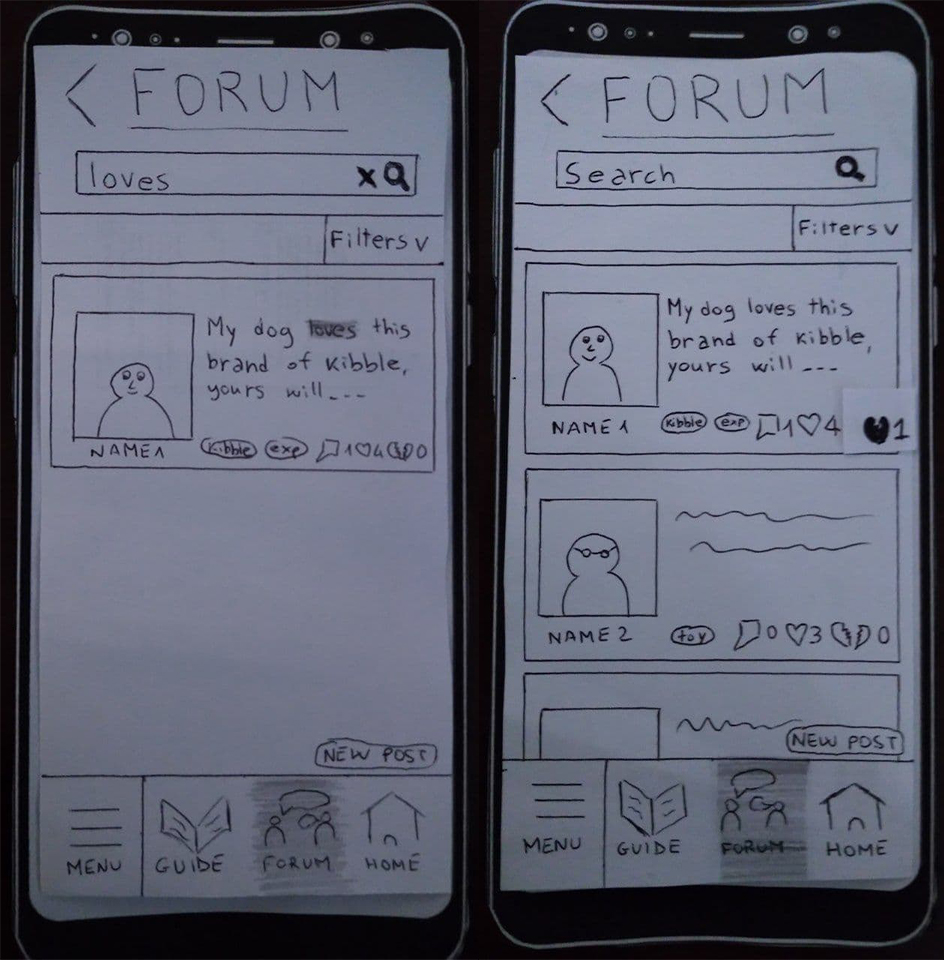 FORUM
loves X
Filters v
My dog loves this
brand of kibble,
yours will ---
NAME 1
kibble exp 1 4 0
NEW POST
MENU GUIDE FORUM HOME
FORUM
Search
Filters v
My dog loves this
brand of kibble,
yours will ---
NAME 1
kibble exp 1 4 1
NAME 2
toy 0 3 0
NEW POST
MENU GUIDE FORUM HOME